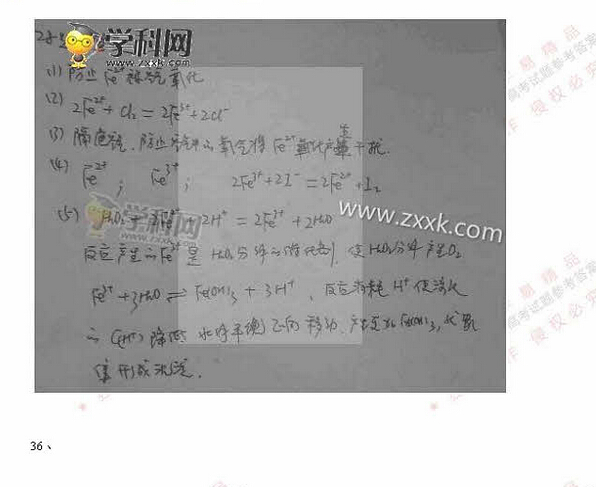 28
学科网
www.zxxk.com
(1) 防止Fe²⁺被氧化
(2) 2Fe²⁺ + Cl₂ = 2Fe³⁺ + 2Cl⁻
(3) 隔绝空气、防止空气中的氧气将Fe²⁺氧化产生干扰.
(4) Fe²⁺; Fe³⁺; 2Fe³⁺ + 2I⁻ = 2Fe²⁺ + I₂
(5) H₂O₂ + 2H⁺ = 2Fe³⁺ + 2H₂O
www.zxxk.com
反应产生的Fe³⁺是H₂O₂分解的催化剂, 使H₂O₂分解产生O₂
Fe³⁺ + 3H₂O ⇌ Fe(OH)₃ + 3H⁺、反应消耗H⁺使溶液
中c(H⁺)降低 水解平衡正向移动、产生Fe(OH)₃,
形成沉淀.
36、
精品
高考试题参考答案
侵权必究